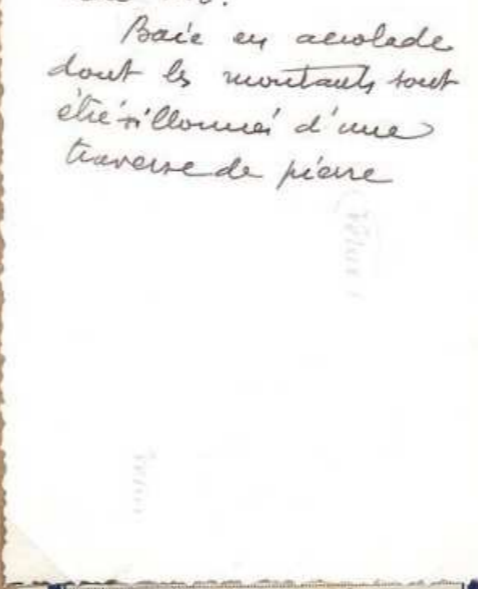 Baie en accolade
dont les montants sont
étrésillonnés d'une
traverse de pierre